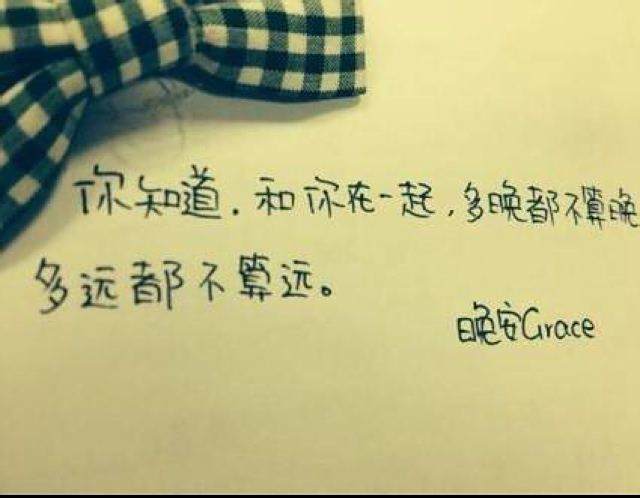 你知道，和你在一起，多晚都不算晚
多远都不算远。
晚安Grace